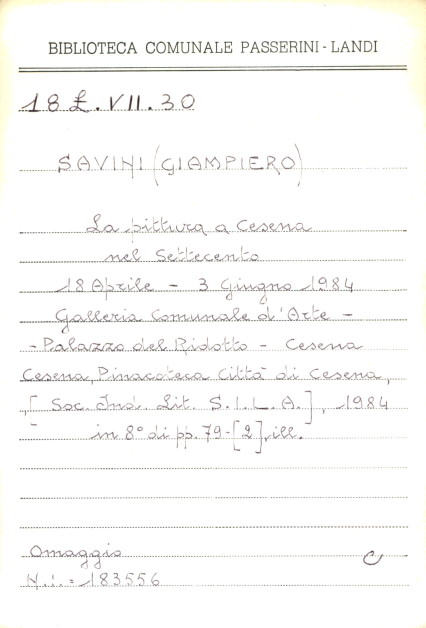 BIBLIOTECA COMUNALE PASSERINI - LANDI
18 £. VII. 30
SAVINI (GIAMPIERO)
La pittura a Cesena
nel Settecento
18 Aprile - 3 Giugno 1984
Galleria Comunale d'Arte -
- Palazzo del Ridotto - Cesena
Cesena, Pinacoteca Città di Cesena,
[Soc. Ind. Lit. S.I.L.A.], 1984
in 8° di pp. 79-[2], ill.
Omaggio C
N.i. = 183556